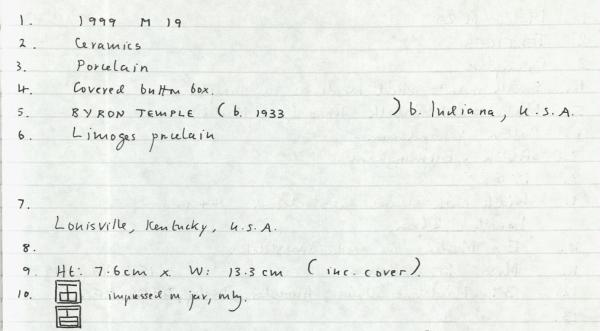 1. 1999 M 19
2. Ceramics
3. Porcelain
4. Covered button box.
5. BYRON TEMPLE (b. 1933 ) b. Indiana, U.S.A.
6. Limoges porcelain
7.
Louisville, Kentucky, U.S.A.
8.
9. Ht: 7.6cm x W: 13.3 cm (inc. cover).
10. impressed on jar,